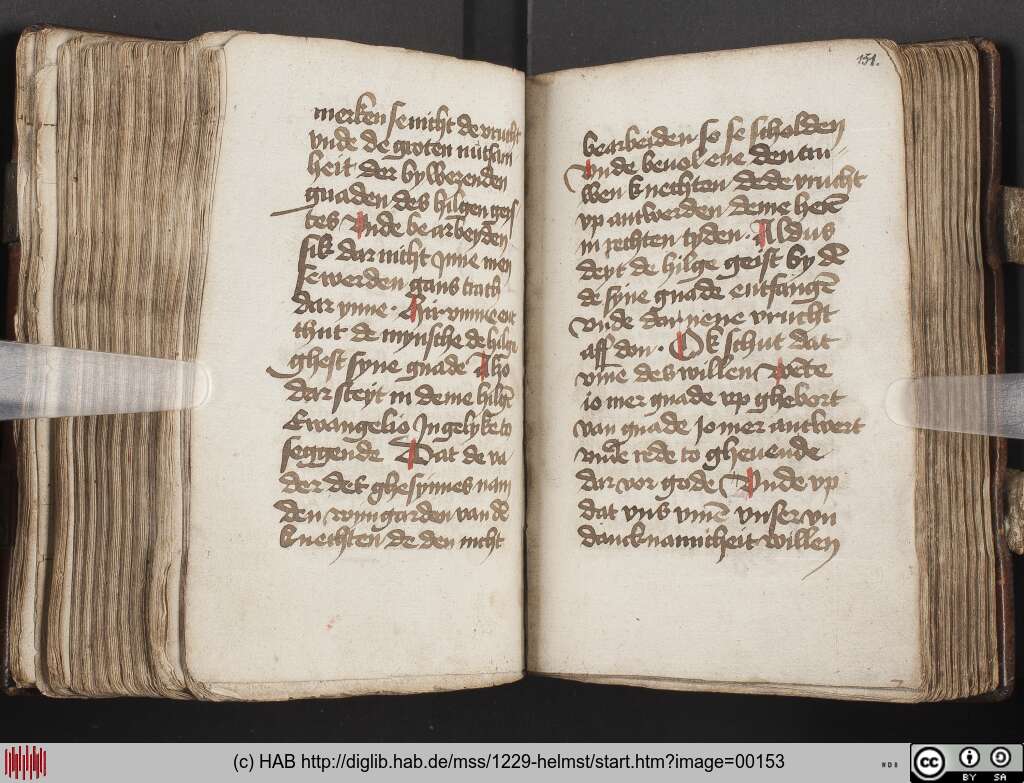 merken se nicht de vrucht
vnde de groten nutsam
heit der bywerenden
gnaden des hilgen geis
tes Vnde bearbeyden
sik dar nicht ynne men
se werden gans trach
dar ynne. Hir vmme ent
thut de mynsche de hilge
ghest syne gnade Also
dar steyt in deme hilgē
Ewangelio In gelyke to
seggende Dat de va
der des ghesynnes nam
den wyngarden van dē
knechten de den nicht
151.
bearbeyden so se scholden
vnde beuol ene den tru
wen knechten de de vrucht
vp antwerden deme herē
in rechten tyden. Aldus
deyt de hilge geist by dē
de syne gnade entfangē
vnde dar nene vrucht
aff don. Ok schut dat
vme des willen Wēte
io mer gnade vp ghebort
van gnade Io mer antwert
vnde rede to gheuende
dar vor gode Vnde vp
dat vns vmē vnser vn
dancknamicheit willen
(c) HAB http://diglib.hab.de/mss/1229-helmst/start.htm?image=00153
WDB
cc BY SA